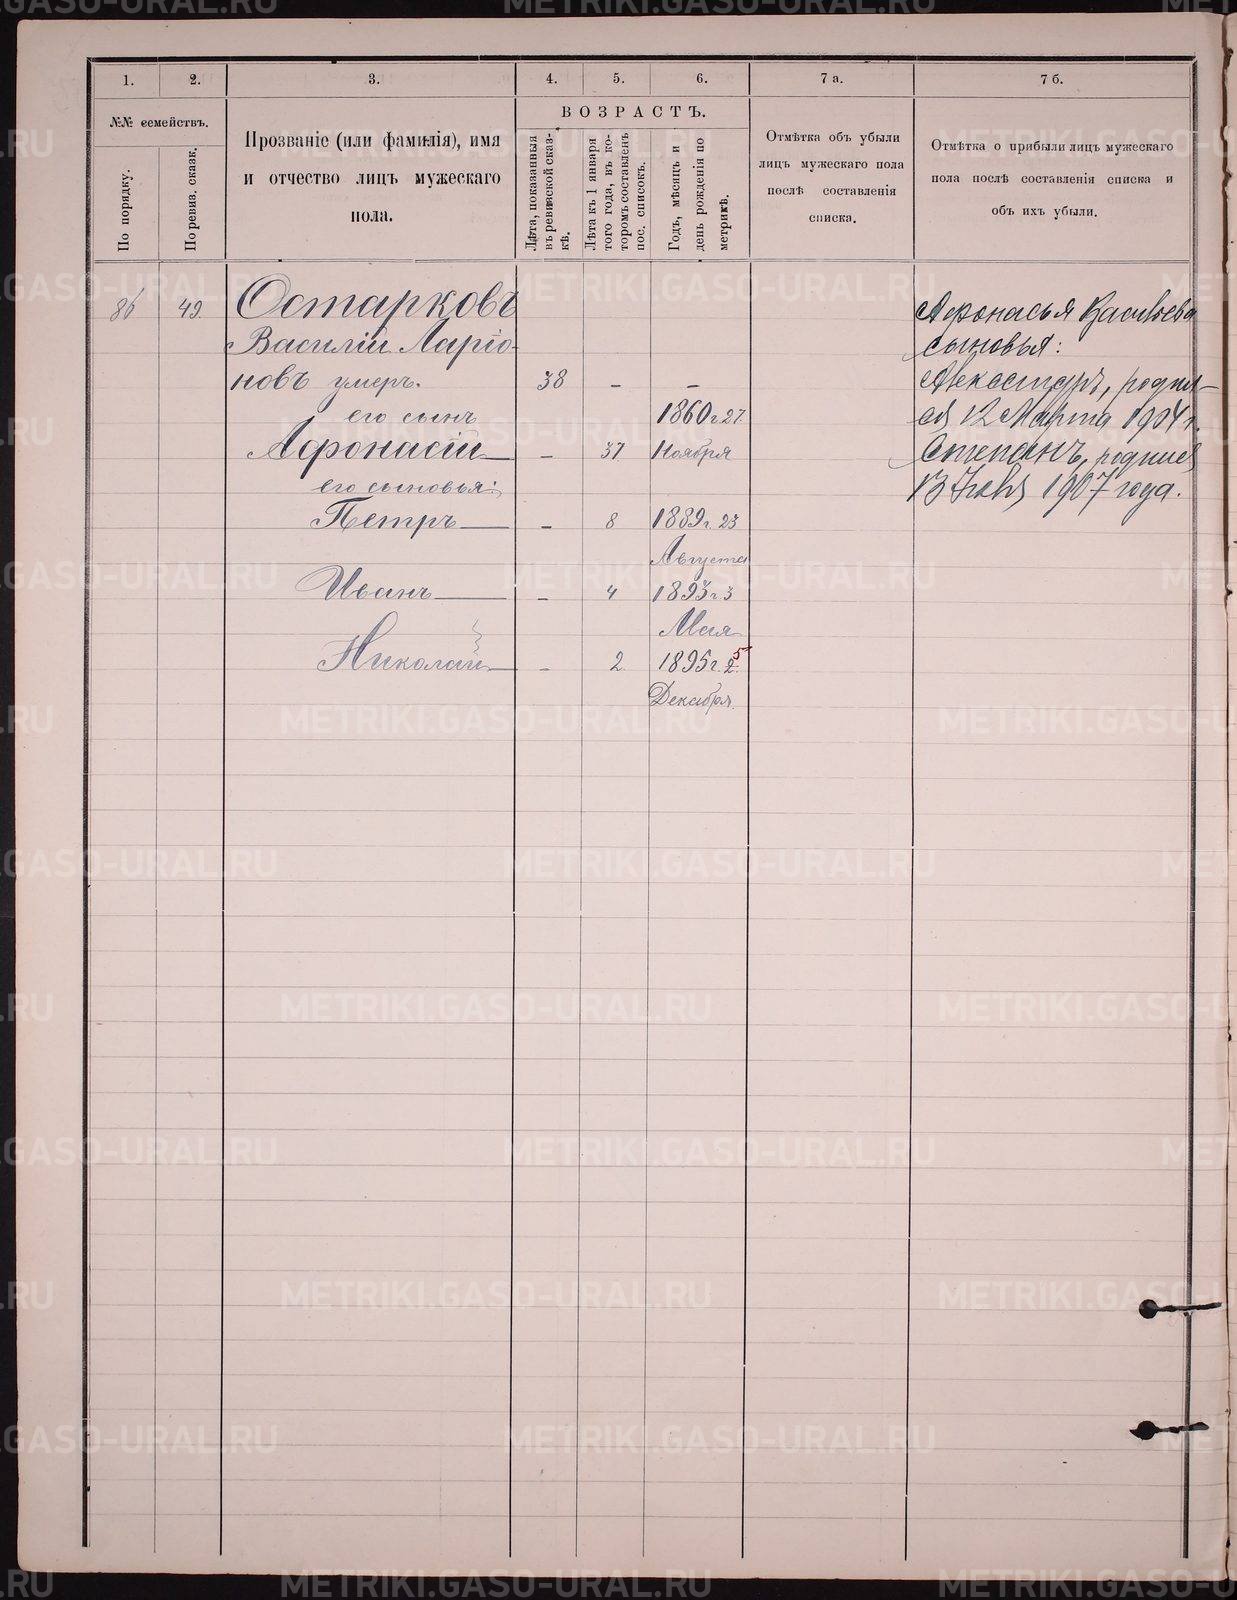 1.
2.
3.
4.
5.
6.
7 а.
7 б.
№№ семействъ.
По порядку.
По ревиз. сказк.
Прозваніе (или фамилія), имя
и отчество лицъ мужескаго
пола.
ВОЗРАСТЪ.
Лѣта, показанныя
въ ревизской сказ-
кѣ.
Лѣта къ 1 января
того года, въ ко-
торомъ составленъ
пос. списокъ.
Годъ, мѣсяцъ и
день рожденія по
метрикѣ.
Отмѣтка объ убыли
лицъ мужескаго пола
послѣ составленія
списка.
Отмѣтка о прибыли лицъ мужескаго
пола послѣ составленія списка и
объ ихъ убыли.
86 49. Остарковъ
Василій Ларіо-
новъ умеръ. 38 – –
его сынъ 1860 г. 27
Афонасій – 37 Ноября
его сыновья:
Петръ – 8 1889 г. 23
Августа
Иванъ – 4 1893 г. 3
Мая
Николай – 2. 1895 г. 2. 5
Декабря.
Афонасья Васильева
сыновья:
Александръ, родил-
ся 12 Марта 1904 г.
Степанъ, родился
13 1907 года.
METRIKI.GASO-URAL.RU